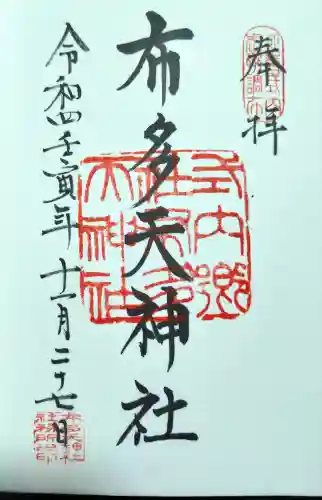 奉拝
布多天神社
令和四壬寅年十一月二十七日